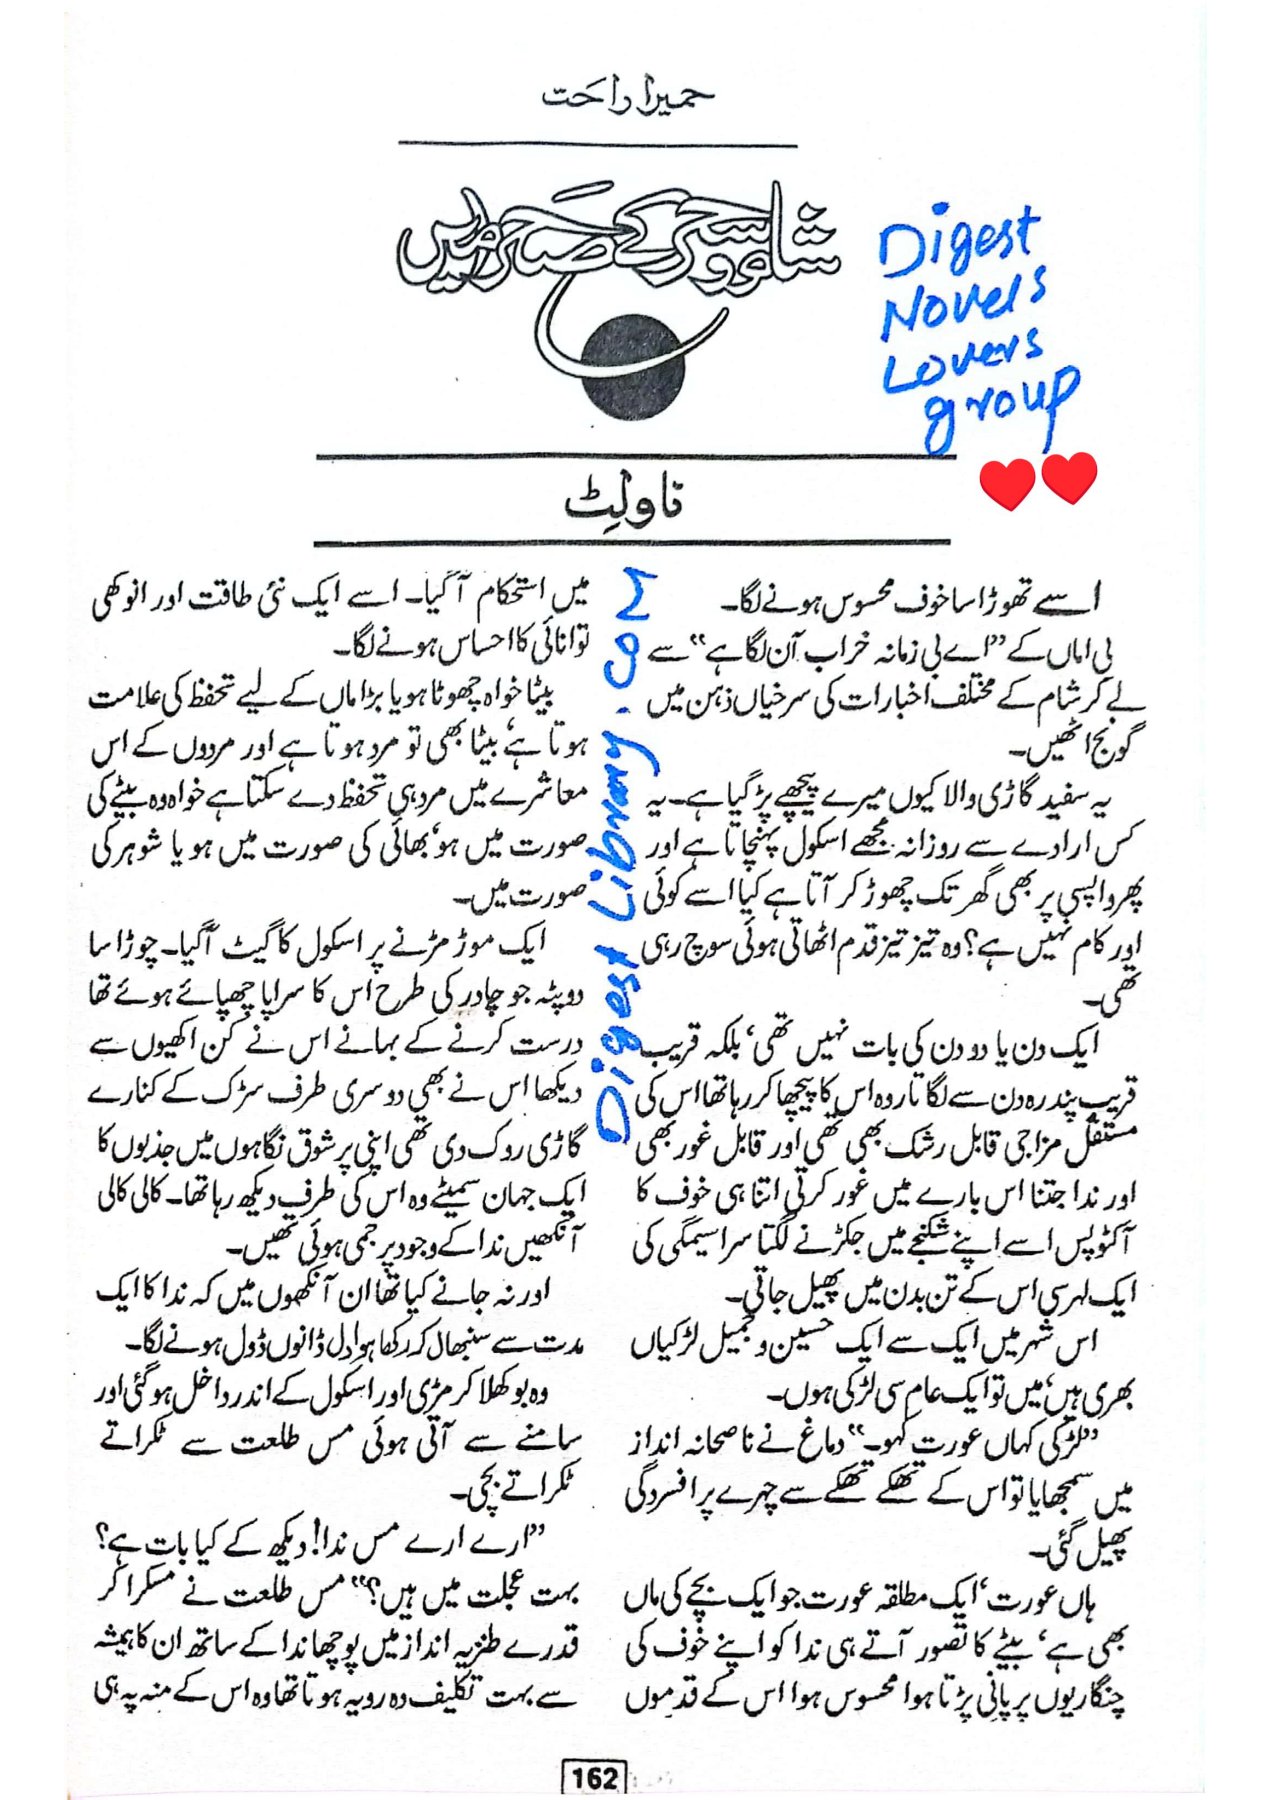 حمیرا راحت
شام و سحر کے صحرا میں
Digest
Novels
Lovers
group
ناولٹ
اسے تھوڑا سا خوف محسوس ہونے لگا۔
بی اماں کے ”اے بی زمانہ خراب آن لگا ہے“ سے
لے کر شام کے مختلف اخبارات کی سرخیاں ذہن میں
گونج اٹھیں۔
یہ سفید گاڑی والا کیوں میرے پیچھے پڑ گیا ہے۔ یہ
کس ارادے سے روزانہ مجھے اسکول پہنچاتا ہے اور
پھر واپسی پر بھی گھر تک چھوڑ کر آتا ہے کیا اسے کوئی
اور کام نہیں ہے؟ وہ تیز تیز قدم اٹھاتی ہوئی سوچ رہی
تھی۔
ایک دن یا دو دن کی بات نہیں تھی‘ بلکہ قریب
قریب پندرہ دن سے لگاتار وہ اس کا پیچھا کر رہا تھا اس کی
مستقل مزاجی قابل رشک بھی تھی اور قابل غور بھی
اور ندا جتنا اس بارے میں غور کرتی اتنا ہی خوف کا
آکٹوپس اسے اپنے شکنجے میں جکڑنے لگتا سراسیمگی کی
ایک لہر سی اس کے تن بدن میں پھیل جاتی۔
اس شہر میں ایک سے ایک حسین و جمیل لڑکیاں
بھری ہیں‘ میں تو ایک عام سی لڑکی ہوں۔
”لڑکی کہاں عورت کہو۔“ دماغ نے ناصحانہ انداز
میں سمجھایا تو اس کے تھکے تھکے سے چہرے پر افسردگی
پھیل گئی۔
ہاں عورت‘ ایک مطلقہ عورت جو ایک بچے کی ماں
بھی ہے‘ بیٹے کا تصور آتے ہی ندا کو اپنے خوف کی
چنگاریوں پر پانی پڑتا ہوا محسوس ہوا اس کے قدموں
میں استحکام آ گیا۔ اسے ایک نئی طاقت اور انوکھی
توانائی کا احساس ہونے لگا۔
بیٹا خواہ چھوٹا ہو یا بڑا ماں کے لیے تحفظ کی علامت
ہوتا ہے‘ بیٹا بھی تو مرد ہوتا ہے اور مردوں کے اس
معاشرے میں مرد ہی تحفظ دے سکتا ہے خواہ وہ بیٹے کی
صورت میں ہو‘ بھائی کی صورت میں ہو یا شوہر کی
صورت میں۔
ایک موڑ مڑنے پر اسکول کا گیٹ آ گیا۔ چوڑا سا
دوپٹہ جو چادر کی طرح اس کا سراپا چھپائے ہوئے تھا
درست کرنے کے بہانے اس نے کن اکھیوں سے
دیکھا اس نے بھی دوسری طرف سڑک کے کنارے
گاڑی روک دی تھی اپنی پر شوق نگاہوں میں جذبوں کا
ایک جہان سمیٹے وہ اس کی طرف دیکھ رہا تھا۔ کالی کالی
آنکھیں ندا کے وجود پر جمی ہوئی تھیں۔
اور نہ جانے کیا تھا ان آنکھوں میں کہ ندا کا ایک
مدت سے سنبھال کر رکھا ہوا دل ڈانواں ڈول ہونے لگا۔
وہ بوکھلا کر مڑی اور اسکول کے اندر داخل ہو گئی اور
سامنے سے آتی ہوئی مس طلعت سے ٹکراتے
ٹکراتے بچی۔
”ارے ارے مس ندا! دیکھ کے کیا بات ہے؟
بہت عجلت میں ہیں؟“ مس طلعت نے مسکرا کر
قدرے طنزیہ انداز میں پوچھا ندا کے ساتھ ان کا ہمیشہ
سے بہت تکلیف دہ رویہ ہوتا تھا وہ اس کے منہ پہ ہی
Digest Library.com
162